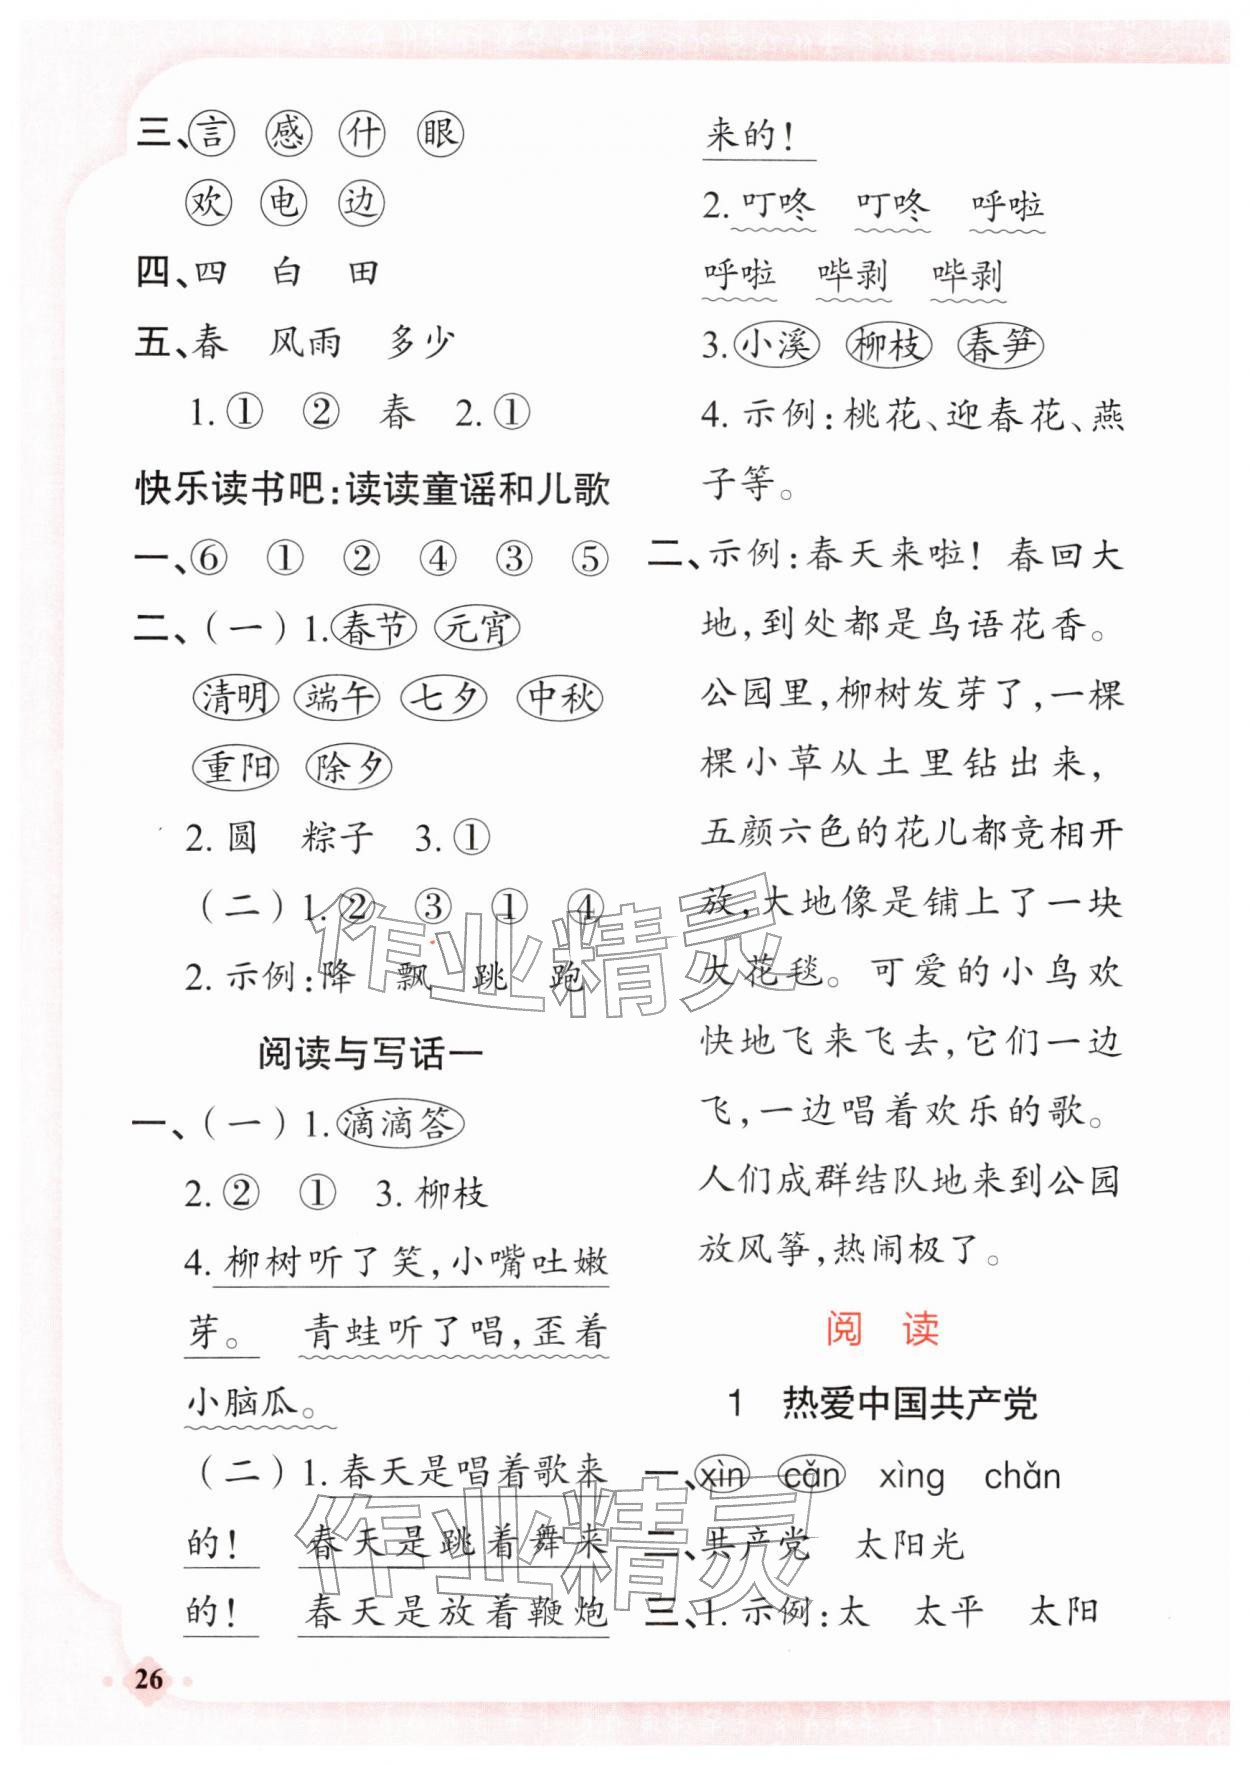 三、言 感 什 眼
欢 电 边
四、四 白 田
五、春 风雨 多少
1. ① ② 春 2. ①
快乐读书吧：读读童谣和儿歌
一、⑥ ① ② ④ ③ ⑤
二、（一）1. 春节 元宵
清明 端午 七夕 中秋
重阳 除夕
2. 圆 粽子 3. ①
（二）1. ② ③ ① ④
2. 示例：降 飘 跳 跑
阅读与写话一
一、（一）1. 滴滴答
2. ② ① 3. 柳枝
4. 柳树听了笑，小嘴吐嫩
芽。 青蛙听了唱，歪着
小脑瓜。
（二）1. 春天是唱着歌来
的！ 春天是跳着舞来
的！ 春天是放着鞭炮
来的！
2. 叮咚 叮咚 呼啦
呼啦 哔剥 哔剥
3. 小溪 柳枝 春笋
4. 示例：桃花、迎春花、燕
子等。
二、示例：春天来啦！春回大
地，到处都是鸟语花香。
公园里，柳树发芽了，一棵
棵小草从土里钻出来，
五颜六色的花儿都竞相开
放，大地像是铺上了一块
大花毯。可爱的小鸟欢
快地飞来飞去，它们一边
飞，一边唱着欢乐的歌。
人们成群结队地来到公园
放风筝，热闹极了。
阅 读
1 热爱中国共产党
一、xìn cǎn xìng chǎn
二、共产党 太阳光
三、1. 示例：太 太平 太阳
26
作业精灵
作业精灵